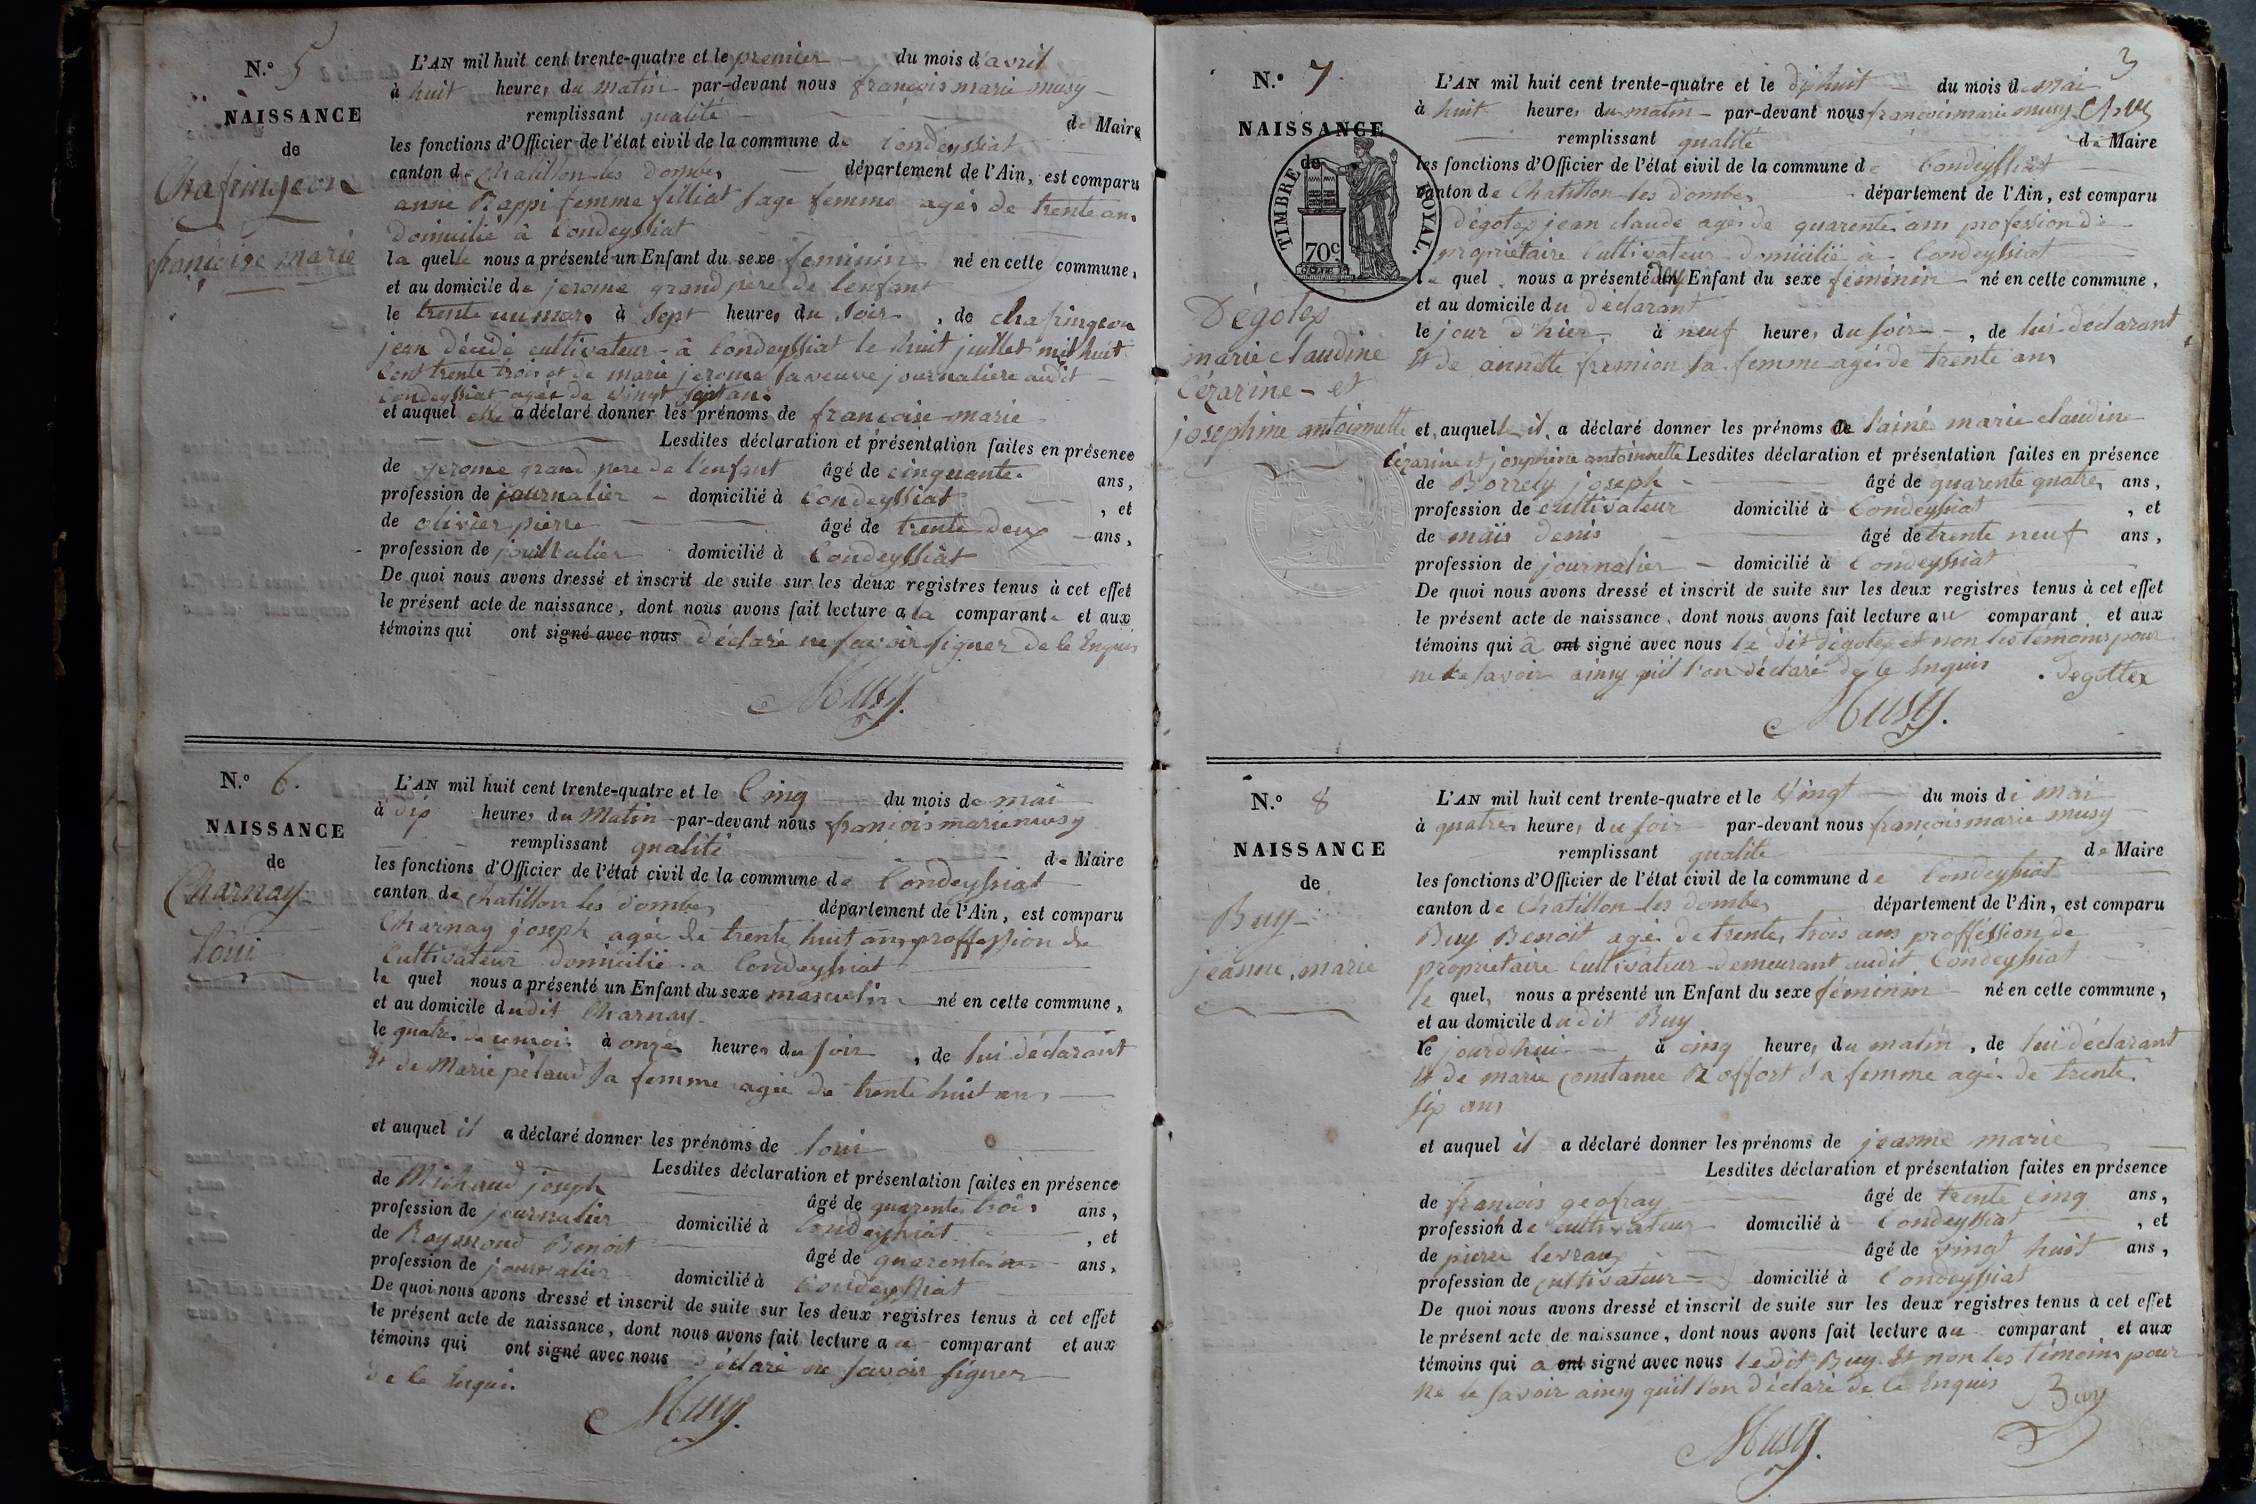 N.° 5
NAISSANCE
de
Chafringeon
françoise marie
L'AN mil huit cent trente-quatre et le premier du mois d'avril
à huit heures du matin par-devant nous françois marie musy
remplissant qualité de Maire
les fonctions d'Officier de l'état civil de la commune de Condeyssiat
canton de Chatillon les dombes département de l'Ain, est comparu
anne Rappi femme filliat sage femme agés de trente ans
domicilié à Condeyssiat
la quelle nous a présenté un Enfant du sexe feminin né en cette commune,
et au domicile de jerome grand père de l'enfant
le trente un mars à sept heures du soir, de chafringeon
jean décédé cultivateur à Condeyssiat le huit juillet mil huit
cent trente trois et de marie jerome sa veuve journaliere audit
Condeyssiat agés de vingt sept ans
et auquel elle a déclaré donner les prénoms de françoise marie
Lesdites déclaration et présentation faites en présence
de jerome grand pere de l'enfant âgé de cinquante ans,
profession de journalier domicilié à Condeyssiat, et
de olivier pierre âgé de trente deux ans,
profession de domicilié à Condeyssiat
De quoi nous avons dressé et inscrit de suite sur les deux registres tenus à cet effet
le présent acte de naissance, dont nous avons fait lecture a la comparante et aux
témoins qui ont signé avec nous déclaré ne savoir signer de le Enquis
Musy.
N.° 6.
NAISSANCE
de
Charnay
loui
L'AN mil huit cent trente-quatre et le Cinq du mois de mai
à dix heures du Matin par-devant nous françois marie musy
remplissant qualité de Maire
les fonctions d'Officier de l'état civil de la commune de Condeyssiat
canton de chatillon les dombes département de l'Ain, est comparu
Charnay joseph agée de trente huit ans proffession de
Cultivateur domicilié a Condeyssiat
le quel nous a présenté un Enfant du sexe masculin né en cette commune,
et au domicile dudit Charnay
le quatre de ce mois à onze heures du soir, de lui déclarant
Et de Marie pélaud sa femme agée de trente huit ans
et auquel il a déclaré donner les prénoms de loui
Lesdites déclaration et présentation faites en présence
de Michaud joseph âgé de quarente trois ans,
profession de journalier domicilié à Condeyssiat, et
de Raymond Benoit âgé de quarente ans,
profession de journalier domicilié à Condeyssiat
De quoi nous avons dressé et inscrit de suite sur les deux registres tenus à cet effet
le présent acte de naissance, dont nous avons fait lecture a comparant et aux
témoins qui ont signé avec nous déclaré ne savoir signer
de le Enquis
Musy.
3
N.° 7.
NAISSANCE
de
TIMBRE ROYAL.
70c
Dégotex
marie claudine
Cézarine et
josephine antoinnette
L'AN mil huit cent trente-quatre et le dixhuit du mois de mai
à huit heures du matin par-devant nous françois marie musy
remplissant qualité de Maire
les fonctions d'Officier de l'état civil de la commune de Condeyssiat
canton de Chatillon les dombes département de l'Ain, est comparu
Dégotex jean claude agés de quarente ans profession de
propriétaire Cultivateur domicilié à Condeyssiat
le quel nous a présenté deux Enfant du sexe féminin né en cette commune,
et au domicile du déclarant
le jour d'hier à neuf heures du soir, de lui déclarant
Et de annette fremion sa femme agés de trente ans
et auquelle il a déclaré donner les prénoms de l'ainé marie claudine
Cézarine et josephine antoinnette Lesdites déclaration et présentation faites en présence
de Borrely joseph âgé de quarente quatre ans,
profession de cultivateur domicilié à Condeyssiat, et
de maïs denis âgé de trente neuf ans,
profession de journalier domicilié à Condeyssiat
De quoi nous avons dressé et inscrit de suite sur les deux registres tenus à cet effet
le présent acte de naissance, dont nous avons fait lecture au comparant et aux
témoins qui a ont signé avec nous le dit dégotex et non les témoins pour
ne le savoir ainsy quil l'on déclaré de le Enquis Degottex
Musy.
N.° 8
NAISSANCE
de
Buy
jeanne marie
L'AN mil huit cent trente-quatre et le Vingt du mois de mai
à quatre heures du soir par-devant nous françois marie musy
remplissant qualité de Maire
les fonctions d'Officier de l'état civil de la commune de Condeyssiat
canton de Chatillon les dombes département de l'Ain, est comparu
Buy Benoit agé de trente trois ans proffession de
propriétaire Cultivateur demeurant audit Condeyssiat
le quel, nous a présenté un Enfant du sexe féminin né en cette commune,
et au domicile dudit Buy
le jourdhui à cinq heures du matin, de lui déclarant
Et de marie constance Roffort sa femme agés de trente
six ans
et auquel il a déclaré donner les prénoms de jeanne marie
Lesdites déclaration et présentation faites en présence
de françois geofray âgé de trente cinq ans,
profession de cultivateur domicilié à Condeyssiat, et
de pierre levraux âgé de vingt huit ans,
profession de cultivateur domicilié à Condeyssiat
De quoi nous avons dressé et inscrit de suite sur les deux registres tenus à cet effet
le présent acte de naissance, dont nous avons fait lecture au comparant et aux
témoins qui a ont signé avec nous ledit Buy Et non les témoins pour
ne le savoir ainsy quil l'on déclaré de le Enquis Buy
Musy.